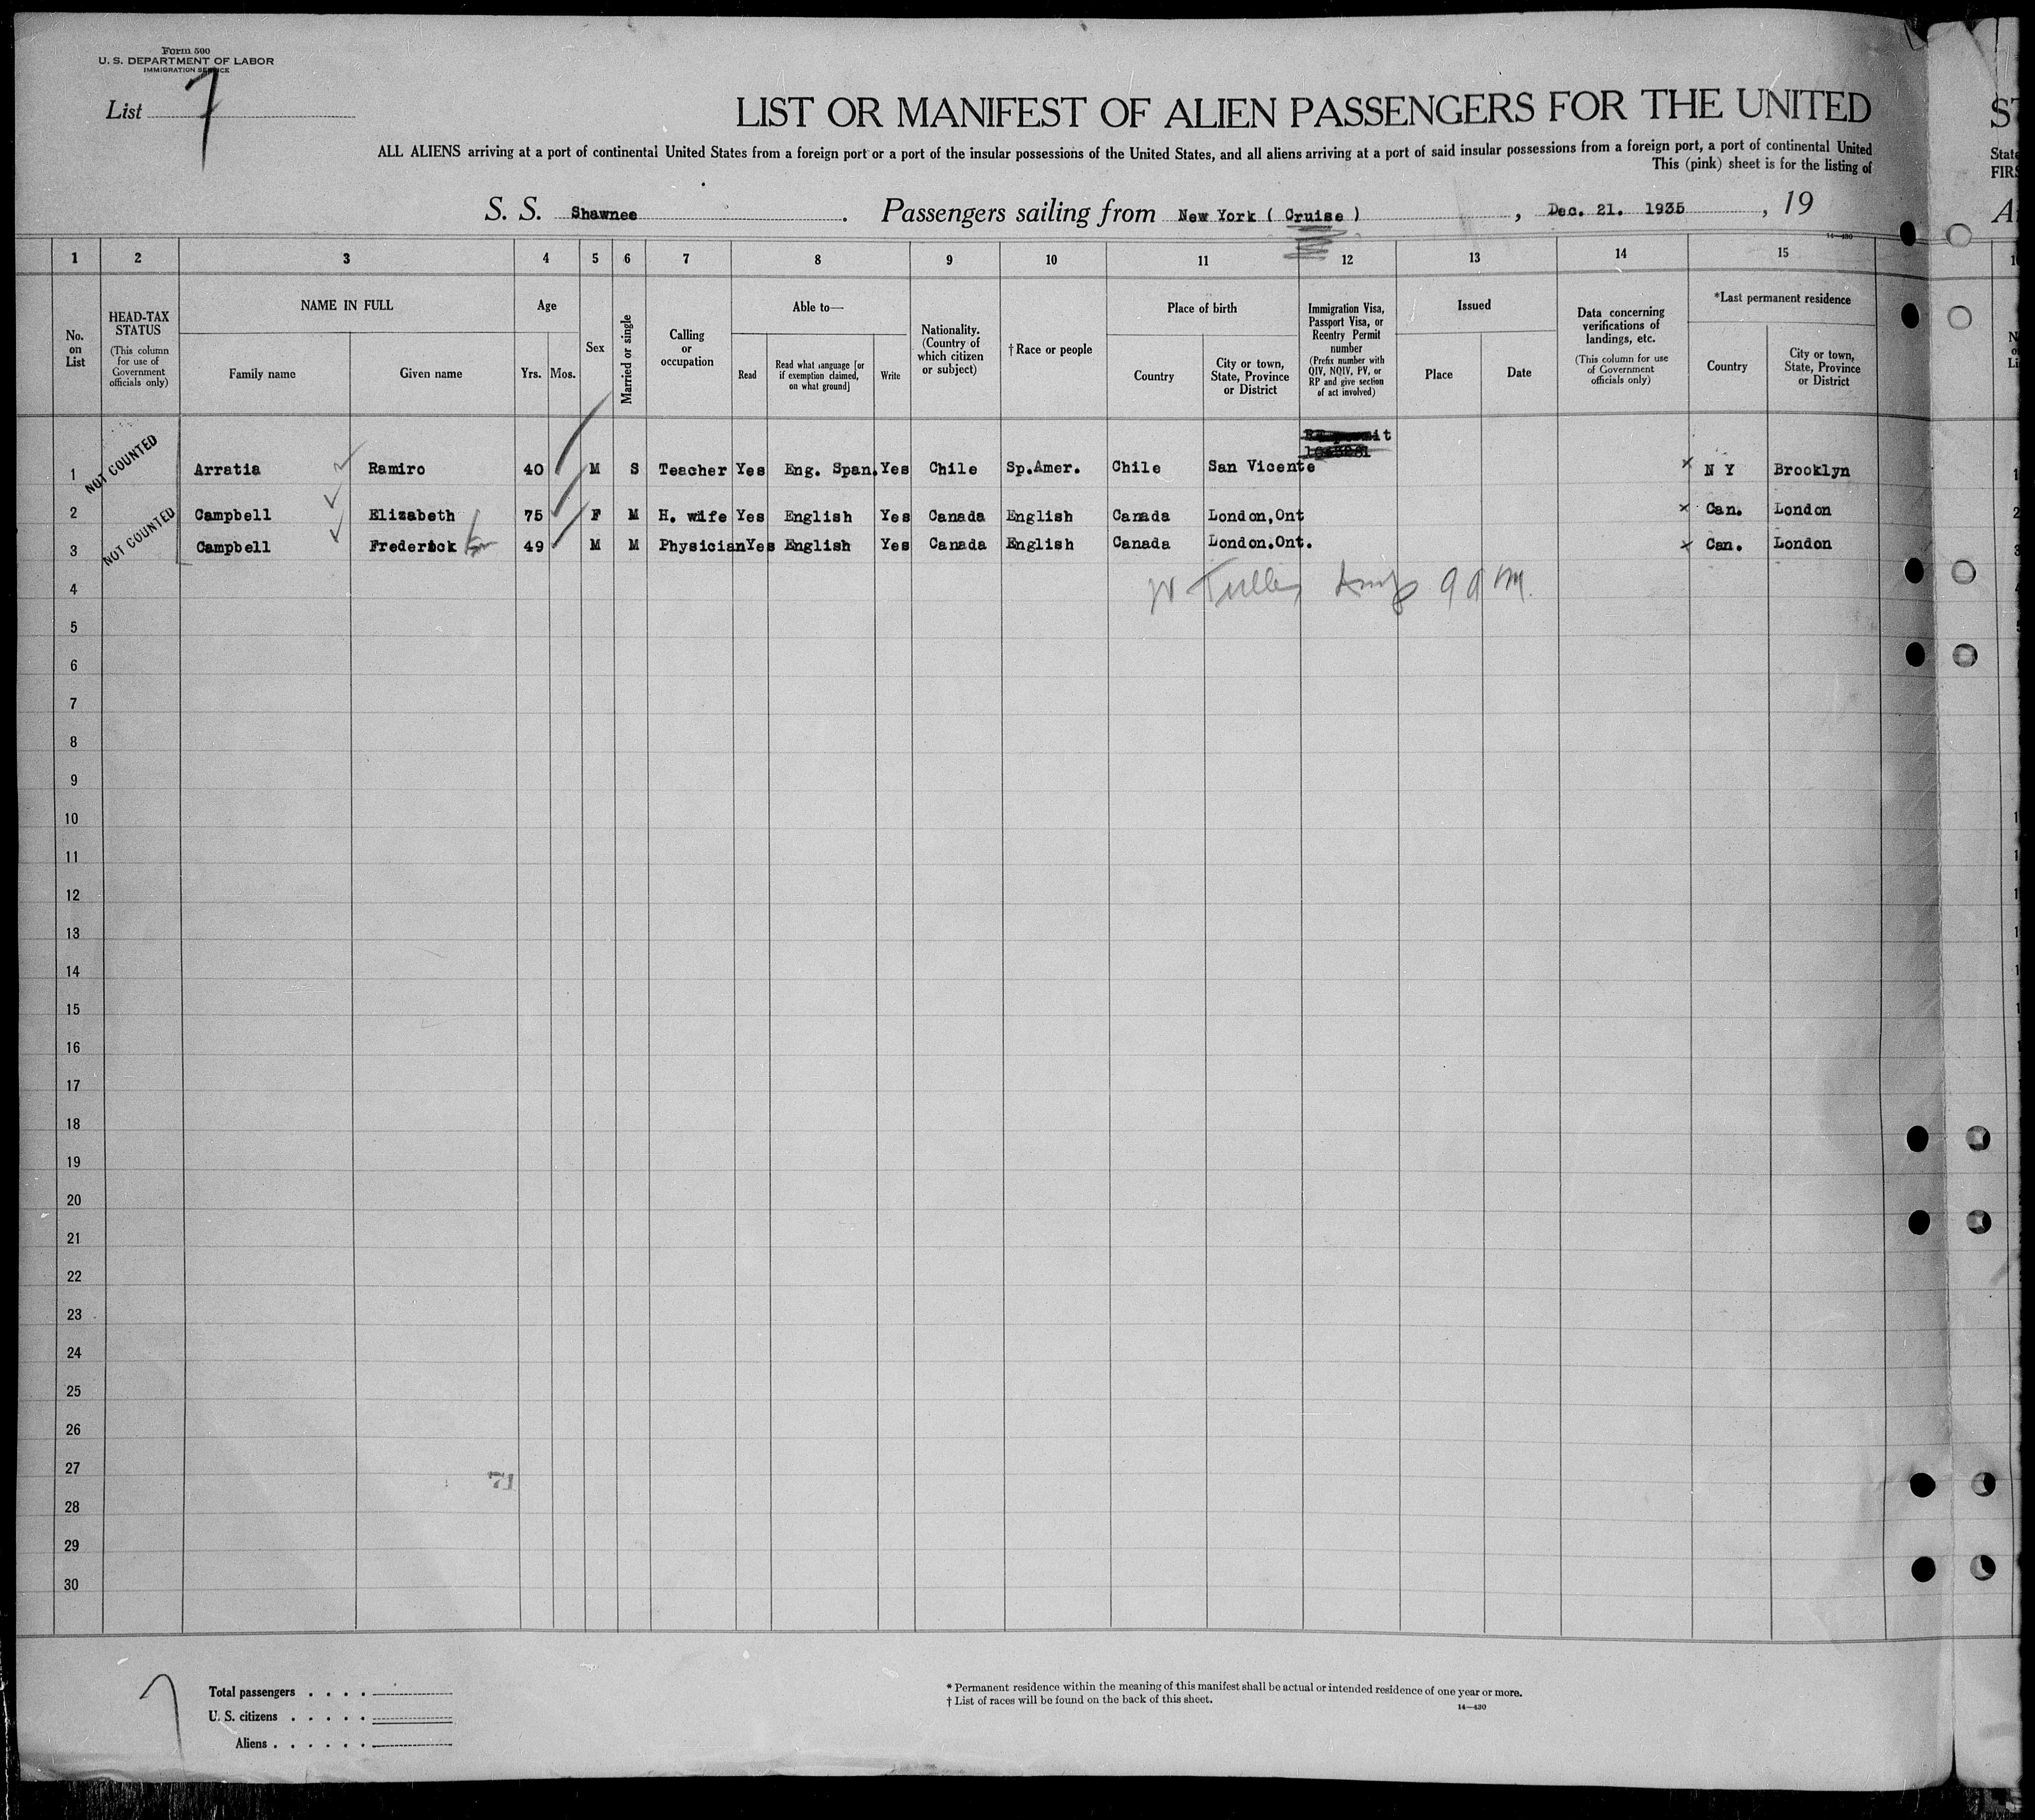 Form 500
U. S. DEPARTMENT OF LABOR
IMMIGRATION SERVICE
List 7
LIST OR MANIFEST OF ALIEN PASSENGERS FOR THE UNITED
ALL ALIENS arriving at a port of continental United States from a foreign port or a port of the insular possessions of the United States, and all aliens arriving at a port of said insular possessions from a foreign port, a port of continental United
This (pink) sheet is for the listing of
S. S. Shawnee. Passengers sailing from New York ( Cruise ), Dec. 21. 1935, 19
14—430
1 2 3 4 5 6 7 8 9 10 11 12 13 14 15
No. on List
HEAD-TAX STATUS (This column for use of Government officials only)
NAME IN FULL
Family name
Given name
Age
Yrs. Mos.
Sex
Married or single
Calling or occupation
Able to—
Read
Read what language [or if exemption claimed, on what ground]
Write
Nationality. (Country of which citizen or subject)
† Race or people
Place of birth
Country
City or town, State, Province or District
Immigration Visa, Passport Visa, or Reentry Permit number (Prefix number with QIV, NQIV, PV, or RP and give section of act involved)
Issued
Place
Date
Data concerning verifications of landings, etc. (This column for use of Government officials only)
*Last permanent residence
Country
City or town, State, Province or District
NOT COUNTED
1 Arratia Ramiro 40 M S Teacher Yes Eng. Span. Yes Chile Sp.Amer. Chile San Vicente x N Y Brooklyn
2 Campbell Elizabeth 75 F M H. wife Yes English Yes Canada English Canada London,Ont x Can. London
NOT COUNTED
3 Campbell Frederick 49 M M Physician Yes English Yes Canada English Canada London.Ont. x Can. London
4
5
6
7
8
9
10
11
12
13
14
15
16
17
18
19
20
21
22
23
24
25
26
27
71
28
29
30
7
Total passengers . . . .
U. S. citizens . . . . .
Aliens . . . . . .
* Permanent residence within the meaning of this manifest shall be actual or intended residence of one year or more.
† List of races will be found on the back of this sheet.
14—430